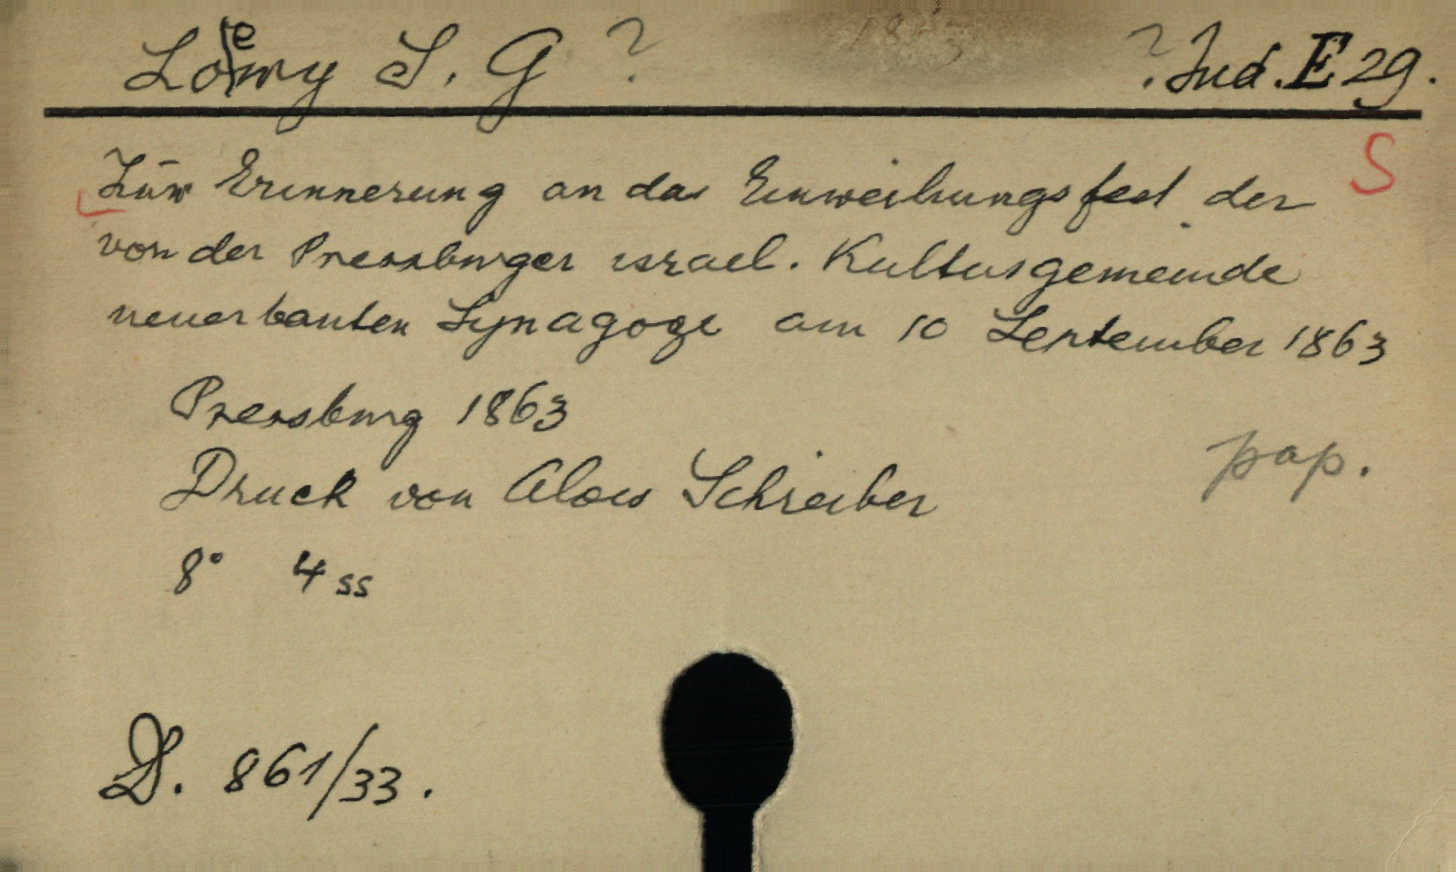 Loewy S. G ? ? Jud. E 29.
S
Zūr Erinnerung an das Einweihungsfest der
von der Pressburger israel. Kultusgemeinde
neuerbauten Synagoge am 10 September 1863
Pressburg 1863
pap.
Druck von Alois Schreiber
8° 4 ss
D. 861/33.